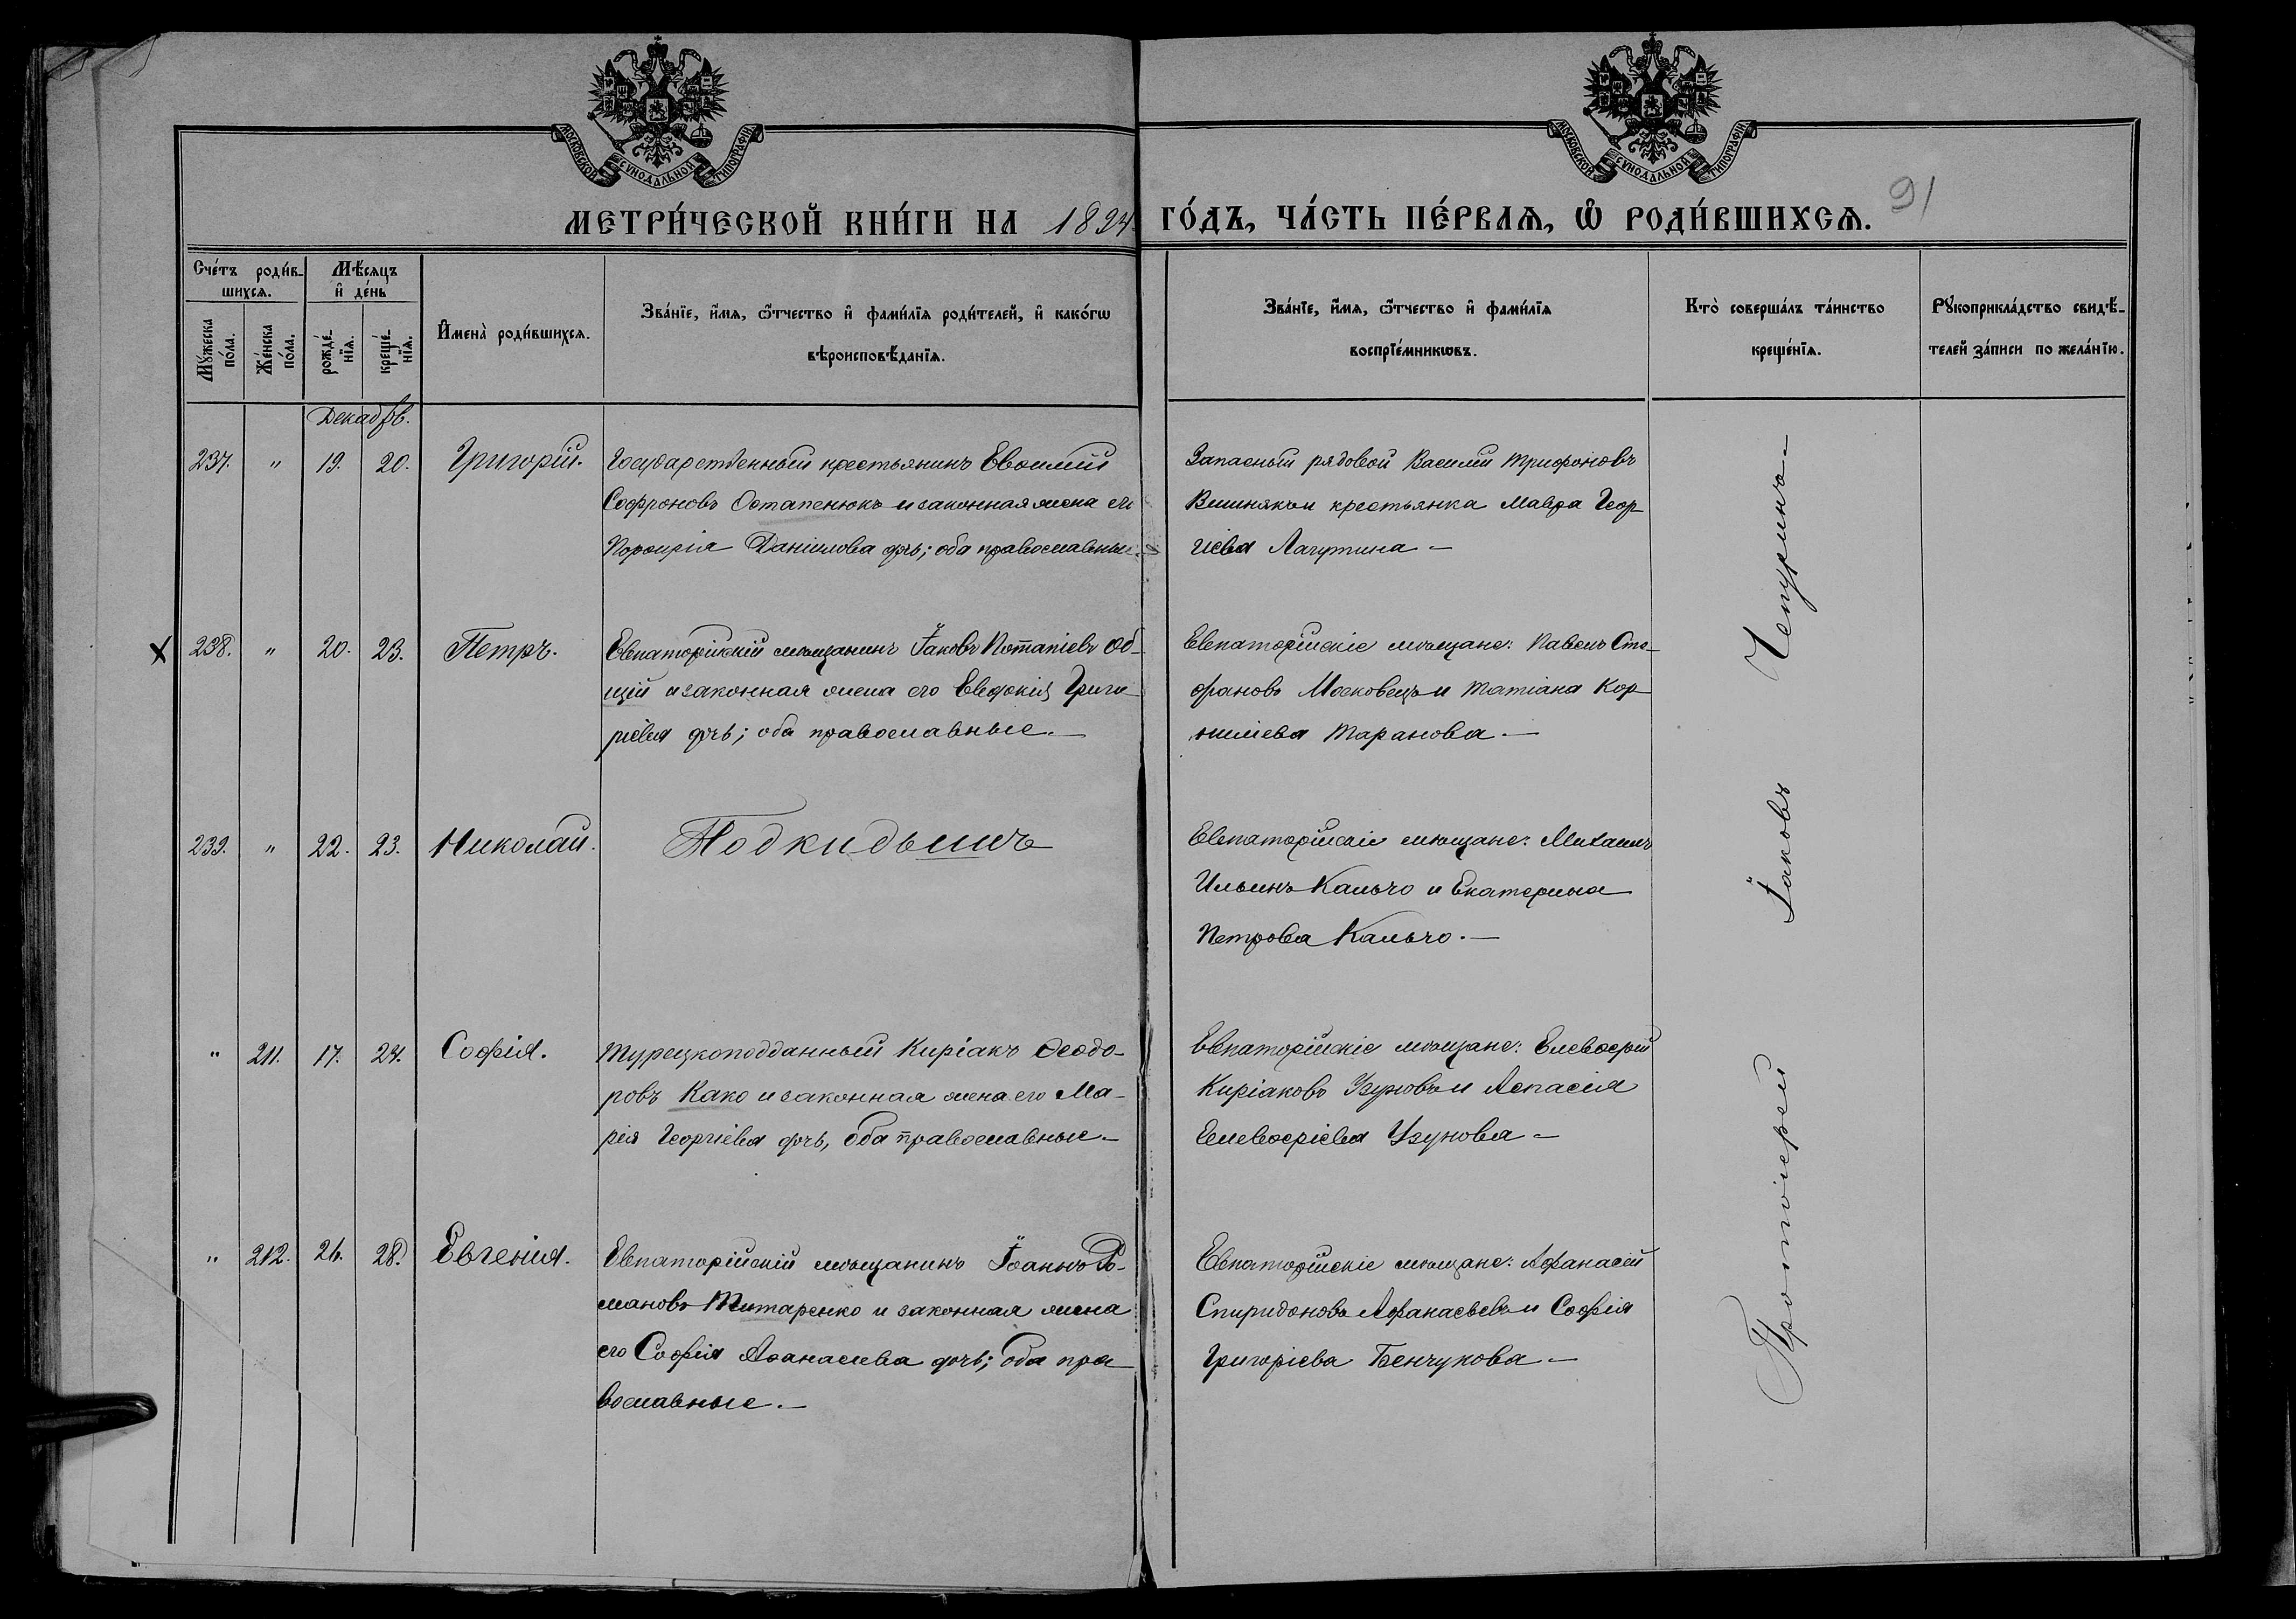 МОСКОВСКОЙ СѴНОДАЛЬНОЙ ТИПОГРАФІИ
МОСКОВСКОЙ СѴНОДАЛЬНОЙ ТИПОГРАФІИ
МЕТРИ́ЧЕСКОЙ КНИ́ГИ НА 1894 ГО́ДЪ, ЧА́СТЬ ПЕ́РВАѦ, Ѡ҆ РОДИ́ВШИХСѦ.
91
Сче́тъ роди́в-
шихсѧ.
Мѣ́сѧцъ
и҆ де́нь
И҆мена̀ роди́вшихсѧ.
Зва́нїе, и҆́мѧ, ѻ҆́тчество и҆ фами́лїѧ роди́телей, и҆ како́гѡ
вѣроисповѣ́данїѧ.
Зва́нїе, и҆́мѧ, ѻ҆́тчество и҆ фами́лїѧ
воспрїе́мникѡвъ.
Кто̀ соверша́лъ та́инство
креще́нїѧ.
Рꙋкоприкла́дство свидѣ́-
телей за́писи по жела́нїю.
Мꙋ́жеска
по́ла.
Же́нска
по́ла.
рожде́-
нїѧ.
креще́-
нїѧ.
Декабрь.
237. " 19. 20. Григорій.
Государственный крестьянинъ Евѳимій
Софроновъ Остапенюкъ и законная жена его
Порфирія Даніилова дочь; оба православные.
Запасный рядовой Василій Трифоновъ
Вишнякъ и крестьянка Мавра Геор
гіева Лагутина —
238. " 20. 23. Петръ.
Евпаторійскій мѣщанинъ Іаковъ Потапіевъ Об-
щій и законная жена его Евдокія Григо
ріева дочь; оба православные. —
Евпаторійскіе мѣщане: Павелъ Сте-
фановъ Московецъ и Татіана Кор
нилиева Таранова. —
239. " 22. 23. Николай.
Подкидышъ
Евпаторійскіе мѣщане: Михаилъ
Ильинъ Кальчо и Екатерина
Петрова Кальчо. —
" 211. 17. 24. Софія.
Турецкоподданный Киріакъ Ѳеодо-
ровъ Како и законная жена его Ма-
рія Георгіева дочь, оба православные —
Евпаторійскіе мѣщане: Елевѳерій
Киріаковъ Узуновъ и Аспасія
Елевѳеріева Узунова —
" 212. 26. 28. Евгенія.
Евпаторійскій мѣщанинъ Іоаннъ Ро-
мановъ Титаренко и законная жена
его Софія Аѳанасиева дочь; оба пра
вославные. —
Евпаторійскіе мѣщане: Афанасій
Спиридоновъ Афанасьевъ и Софія
Григоріева Бенчукова —
Протоіерей Іаковъ Чепуринъ —